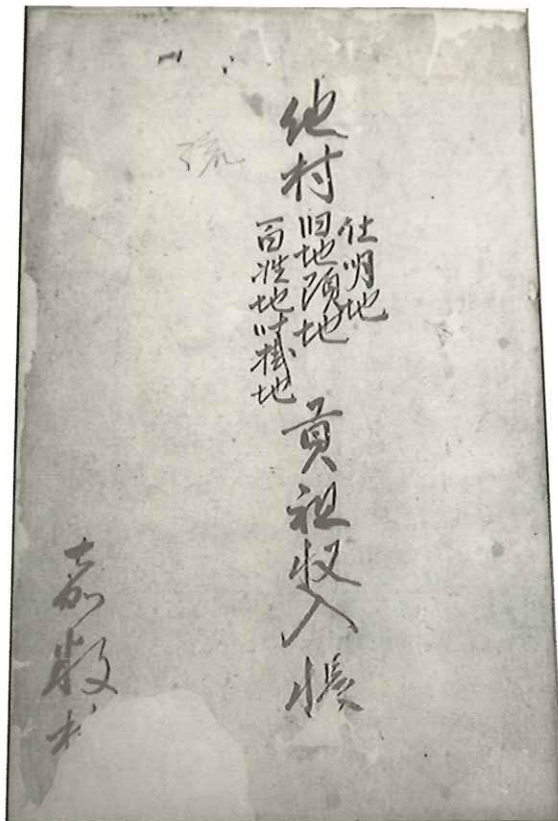 他村
仕明地
旧地頭地
百姓地叶掛地
貢租収入帳
嘉数村
琉